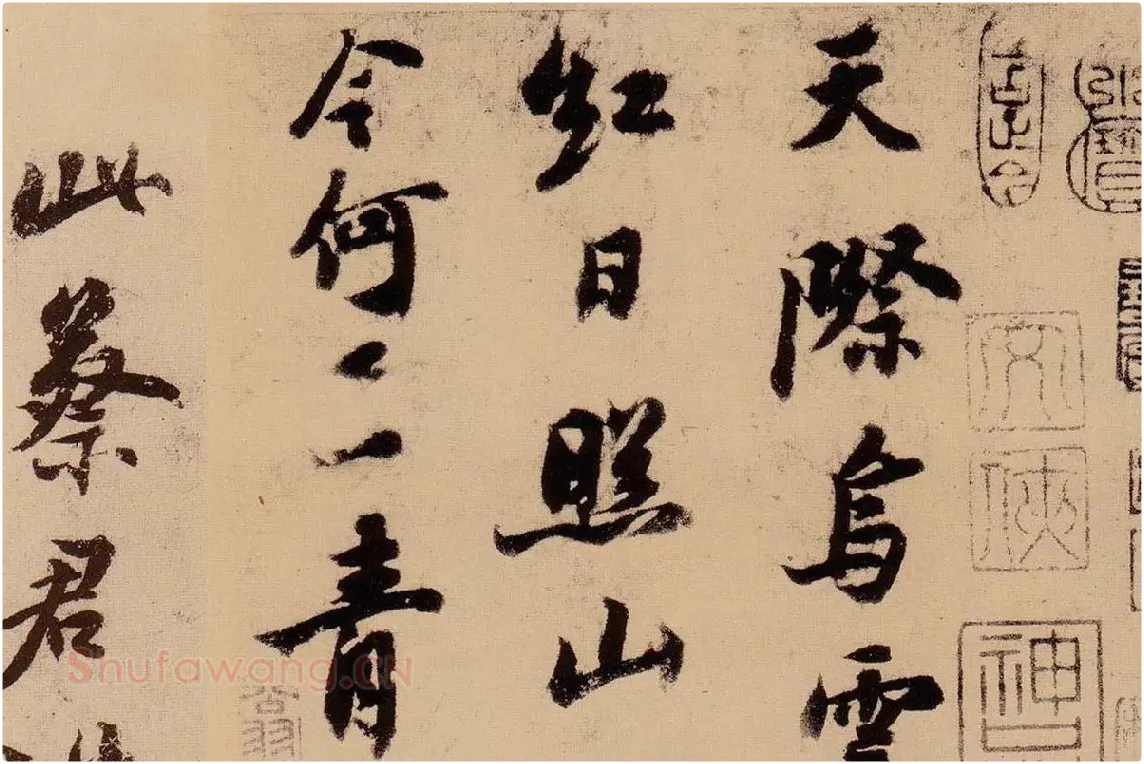 天際烏雲
紅日照山
今何在青
此蔡君
神
Shufawang.CN